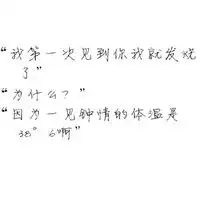 “我第一次见到你我就发烧
了”
“为什么？”
“因为一见钟情的体温是
38°6啊”